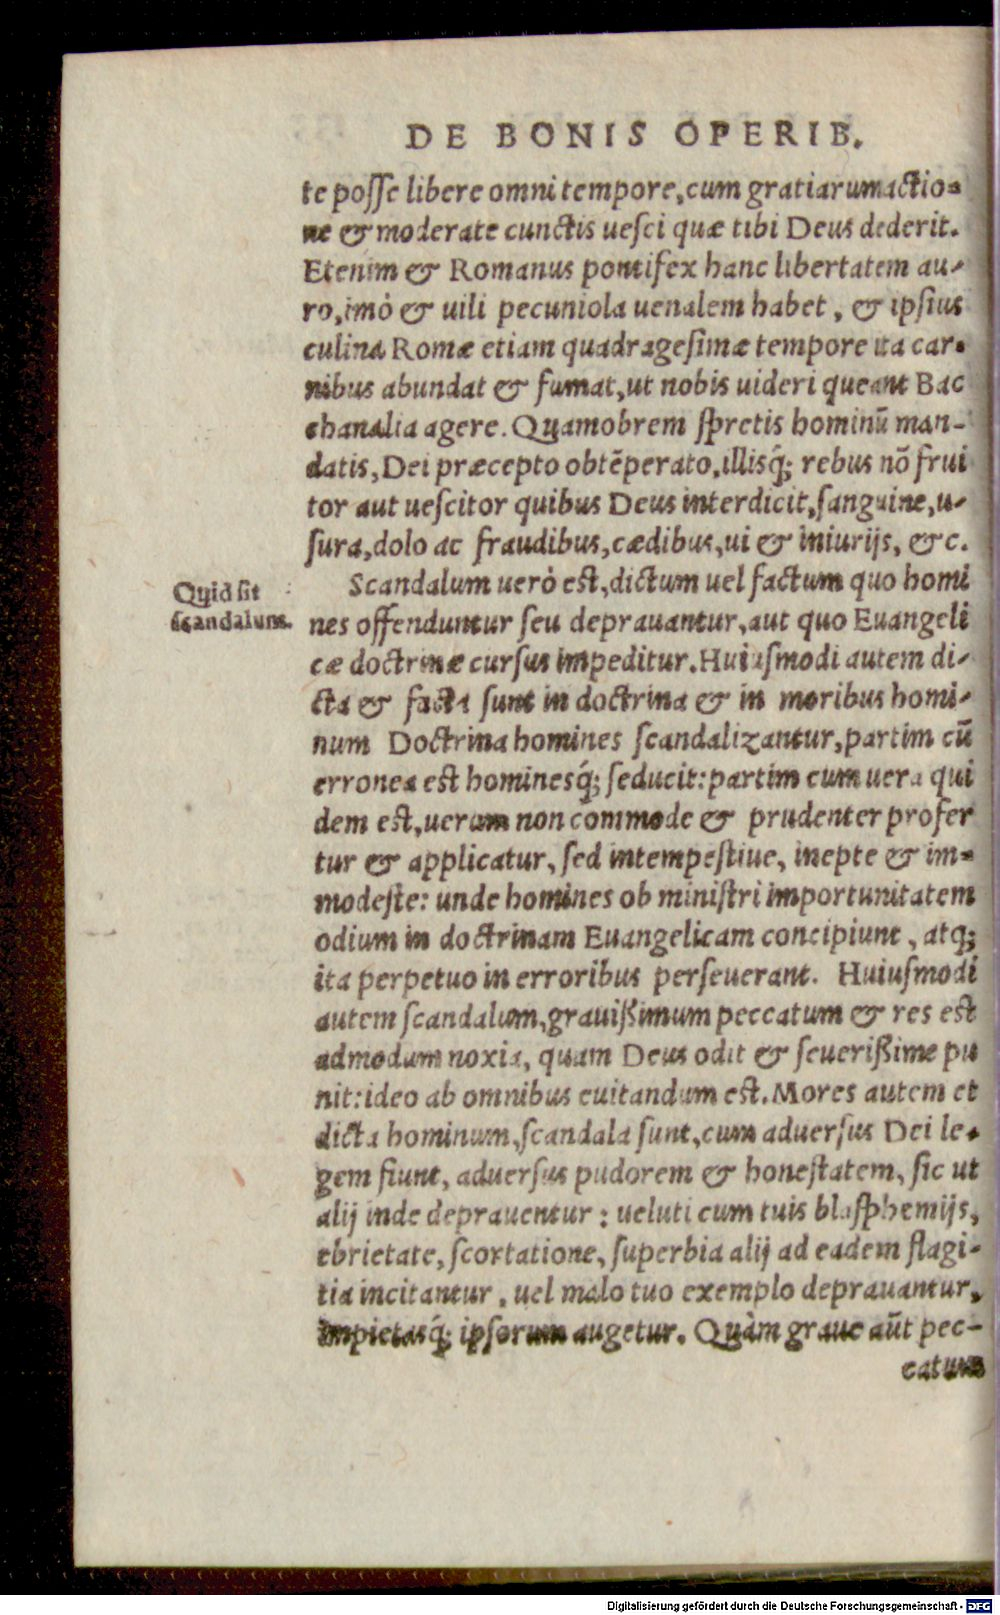 DE BONIS OPERIB.
te posse libere omni tempore, cum gratiarum actio-
ne & moderate cunctis uesci quæ tibi Deus dederit.
Etenim & Romanus pontifex hanc libertatem au-
ro, imò & uili pecuniola uenalem habet, & ipsius
culina Romæ etiam quadragesimæ tempore ita car-
nibus abundat & fumat, ut nobis uideri queant Bac
chanalia agere. Quamobrem spretis hominū man-
datis, Dei præcepto obtēperato, illisq́; rebus nō frui
tor aut uescitor quibus Deus interdicit, sanguine, u-
sura, dolo ac fraudibus, cædibus, ui & iniurijs, &c.
Quid sit
scandalum.
Scandalum uerò est, dictum uel factum quo homi
nes offenduntur seu deprauantur, aut quo Euangeli
cæ doctrinæ cursus impeditur. Huiusmodi autem di-
cta & facta sunt in doctrina & in moribus homi-
num Doctrina homines scandalizantur, partim cū
erronea est hominesq́; seducit: partim cum uera qui
dem est, uerum non commode & prudenter profer
tur & applicatur, sed intempestiue, inepte & im-
modeste: unde homines ob ministri importunitatem
odium in doctrinam Euangelicam concipiunt, atq;
ita perpetuo in erroribus perseuerant. Huiusmodi
autem scandalum, grauißimum peccatum & res est
admodum noxia, quam Deus odit & seuerißime pu
nit: ideo ab omnibus euitandum est. Mores autem et
dicta hominum, scandala sunt, cum aduersus Dei le-
gem fiunt, aduersus pudorem & honestatem, sic ut
alij inde deprauentur: ueluti cum tuis blasphemijs,
ebrietate, scortatione, superbia alij ad eadem flagi-
tia incitantur, uel malo tuo exemplo deprauantur,
impietasq́; ipsorum augetur. Quàm graue aūt pec-
catum
Digitalisierung gefördert durch die Deutsche Forschungsgemeinschaft - DFG